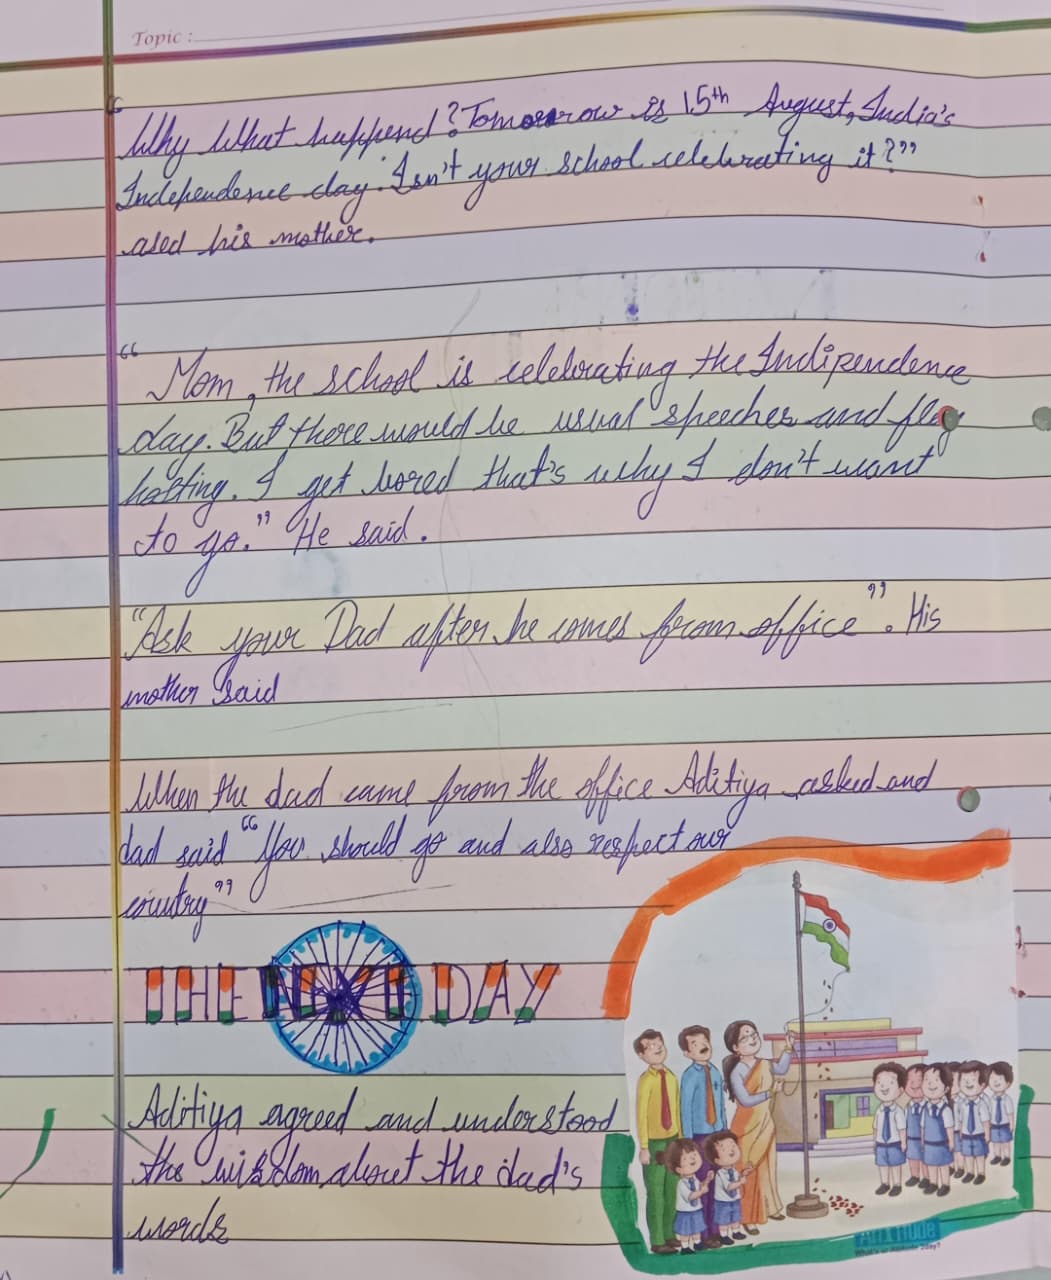 Topic :
“Why What happend? Tomorrow is 15th August, India's
Independence day. Isn't your school celebrating it?”
ased his mother.
“Mom, the school is celebrating the Indipendence
day. But there would be usual speeches and flag
hosting. I get bored that's why I don't want
to go.” He said.
“Ask your Dad after he comes from office”. His
mother said
When the dad came from the office Aditiya asked and
dad said “You should go and also respect our
country”
THE NEXT DAY
Aditiya agreed and understood
the wisdom about the dad's
words